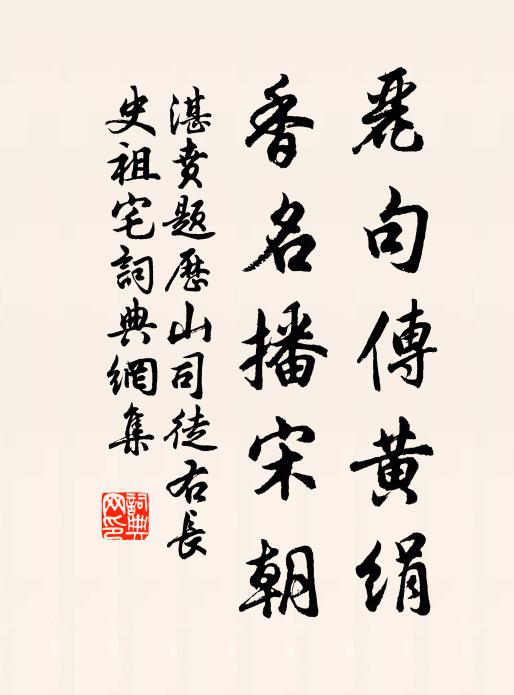 麗句傳黃絹
香名播宋朝
湛賁題歷山司徒右長
史祖宅詞典網集
詞典網印